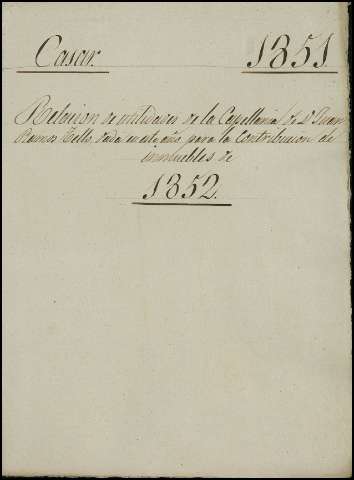 Casar. 1851
Relacion de utilidades de la Capellania de Dn Juan
Ramos Tello, dada en este año, para la Contribucion de
inmuebles de
1852.